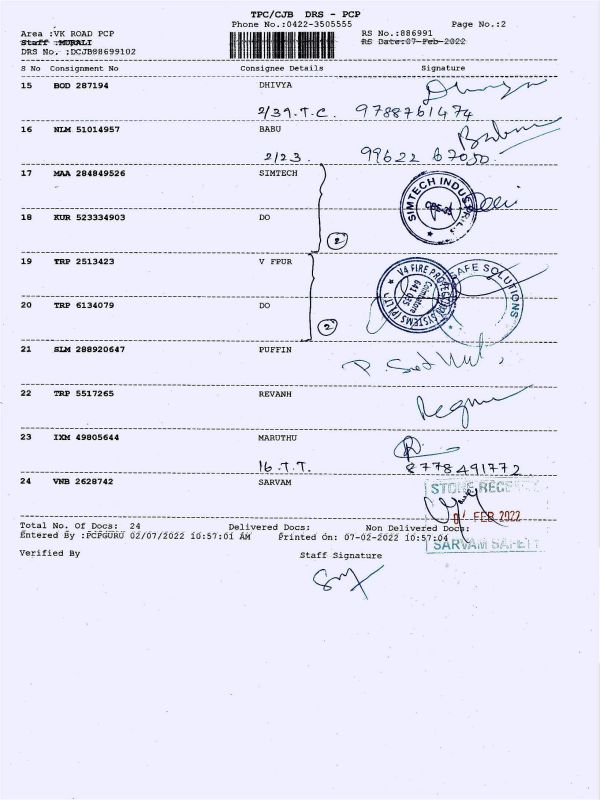 TPC/CJB DRS - PCP
Phone No.:0422-3505555 Page No.:2
Area :VK ROAD PCP RS No.:886991
Staff :MURALI RS Date:07-Feb-2022
DRS No. :DCJB88699102
S No Consignment No Consignee Details Signature
15 BOD 287194 DHIVYA
2/39.T.C. 9788761474
16 NLM 51014957 BABU Babu
2/23. 99622 67050.
17 MAA 284849526 SIMTECH
SIMTECH INDUSTRIES
18 KUR 523334903 DO
2
19 TRP 2513423 V FPUR
V4 FIRE PROTECTION SYSTEMS (P) LTD
Coimbatore
641 025
SAFE SOLUTIONS
20 TRP 6134079 DO
2
21 SLM 288920647 PUFFIN
22 TRP 5517265 REVANH
23 IXM 49805644 MARUTHU
16.T.T. 8778491772
24 VNB 2628742 SARVAM
FEB 2022
SARVAM SAFETY
Total No. Of Docs: 24 Delivered Docs: Non Delivered Docs:
Entered By :PCPGURU 02/07/2022 10:57:01 AM Printed On: 07-02-2022 10:57:04
Verified By Staff Signature